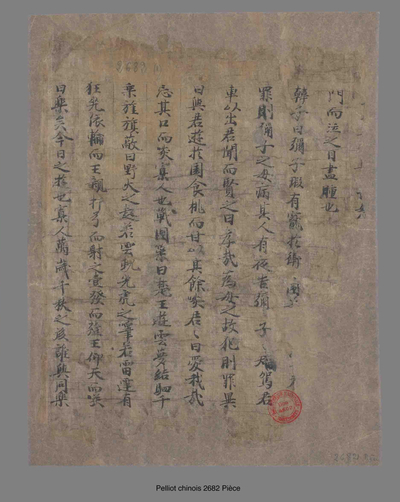 門而泣之目盡腫也
韓子曰彌子瑕有寵於衛國
罪則彌子之母病其人有夜告彌子 駕君
車以出君聞而賢之曰孝哉為母之故犯刖罪異
日與君遊於園食桃而甘以其餘 君君曰愛我哉
忘其口而 寡人也戰國策曰楚王遊雲夢結駟千
乘旌旗蔽日野火之起若雲蜺兕虎之嘷若雷運有
狂兕依輪而王親 弓而射之壹發而殪王仰天而笑
曰樂 今日之遊也寡人萬歲千秋之後誰與同樂
Pelliot chinois 2682 Pièce